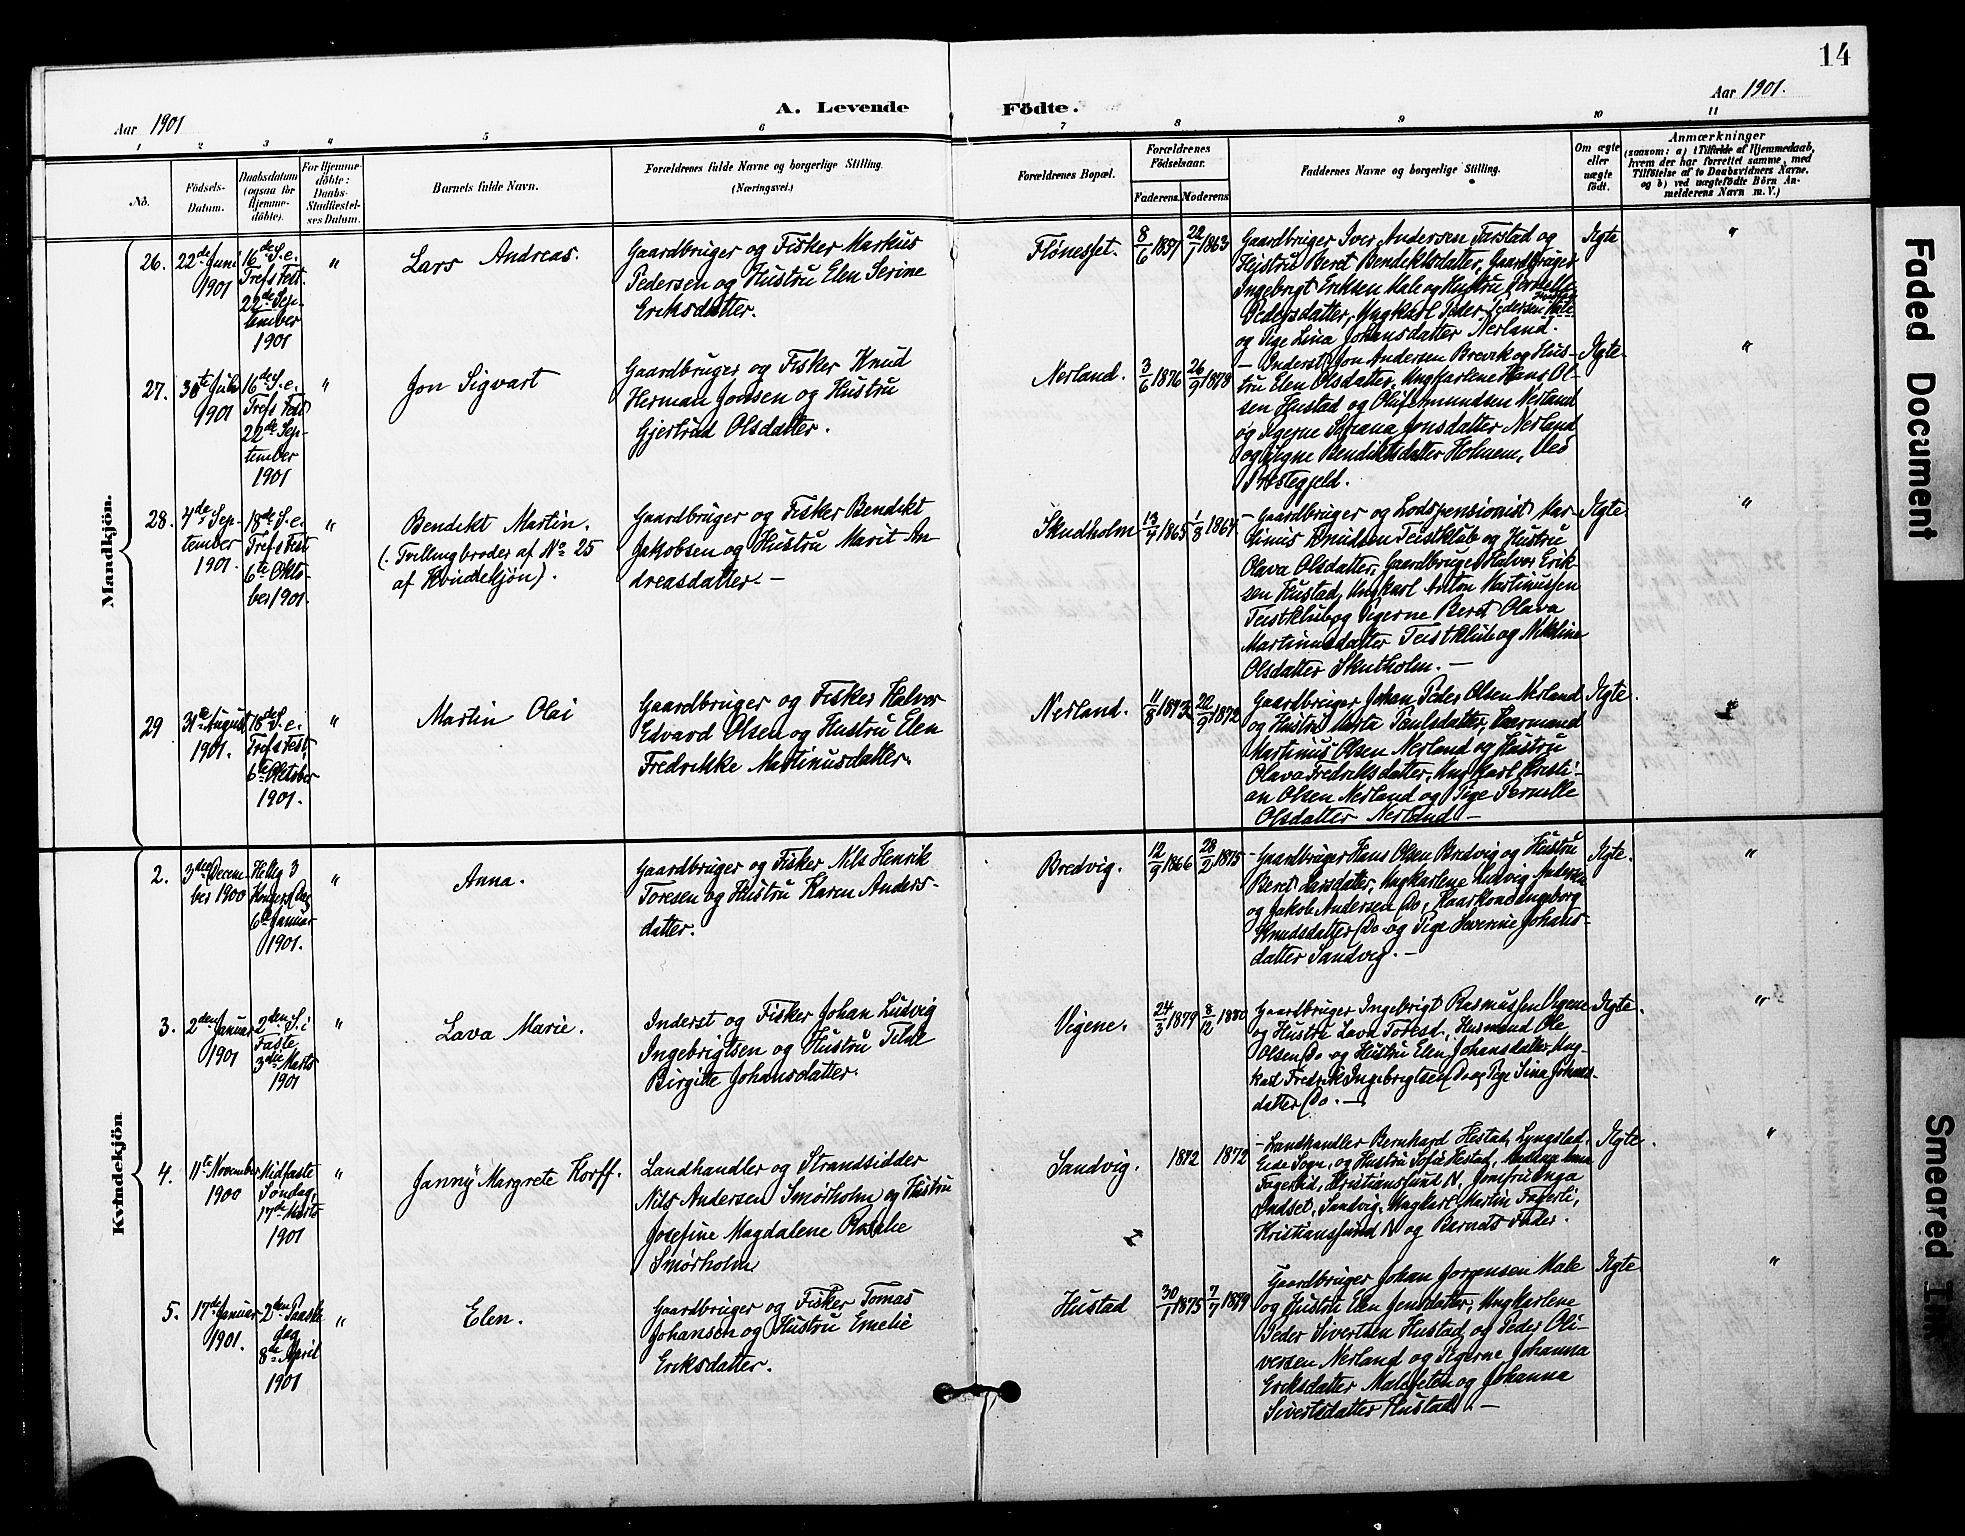 14
Aar 1901
A. Levende Födte.
Aar 1901.
1 2 3 4 5 6 7 8 9 10 11
No.
Födsels-
Datum.
Daabsdatum
(ogsaa for
Hjemme-
döbte).
For Hjemme-
döbte:
Daabs-
Stadfæstel-
ses Datum.
Barnets fulde Navn.
Forældrenes fulde Navne og borgerlige Stilling.
(Næringsvei.)
Forældrenes Bopæl.
Forældrenes
Födselsaar.
Faderens. Moderens.
Faddernes Navne og borgerlige Stilling.
Om ægte
eller
uægte
födt.
Anmærkninger
(saasom: a) i Tilfælde af Hjemmedaab,
hvem der har forrettet samme, med
Tilföielse af to Daabsvidners Navne,
og b) ved uægtefödte Börn An-
melderens Navn m. V.)
Mandkjön.
26.
22de Juni
1901
16de S. e.
Trefs Fest.
22de Sep-
tember
1901
"
Lars Andreas.
Gaardbruger og Fisker Markus
Pedersen og Hustru Elen Serine
Eriksdatter.
Flønesset.
8/6 1857
22/7 1863
Gaardbruger Iver Andersen Farstad og
Hustru Beret Bendiktsdatter, Gaardbruger
Ingebrigt Eriksen Male og Hustru Pernille
Pedersdatter, Ungkarl Peder Pedersen
og Pige Lina Johansdatter Nerland.
Ægte
"
27.
30te Juli
1901
16de S. e.
Trefs Fest
22de Sep-
tember
1901
"
Jon Sigvart
Gaardbruger og Fisker Knud
Herman Jonsen og Hustru
Gjertrud Olsdatter.
Nerland.
3/6 1876
26/9 1878
- Inderst Jon Andersen Brevik og Hus-
tru Elen Olsdatter, Ungkarlene Hans Ol-
sen Hustad og Oluf Amundsen Nerland
og Pigerne Jonsdatter Nerland
og Bendiktsdatter Holmem, Ves
Præstegjeld.
Ægte
"
28.
7de Sep-
tember
1901.
18de S. e.
Trefs Fest
6te Okto-
ber 1901.
"
Bendikt Martin.
(. Tvillingbroder af No 25
af Kvindekjön).
Gaardbruger og Fisker Bendikt
Jakobsen og Hustru Marit An-
dreasdatter. -
Skudholm
13/4 1865
1/8 1867
- Gaardbruger og Lodspensionist Mar-
tinus Knudsen Teistklub og Hustru
Olava Olsdatter, Gaardbruger Halvor Erik-
sen Hustad, Ungkarl Anton Martinussen
Teistklub og Pigerne Beret Olava
Martinusdatter Teistklub og Nikoline
Olsdatter Skutholm. -
Ægte.
"
29
31te August
1901.
18de S. e.
Trefs Fest,
6te Oktober
1901.
"
Martin Olai
Gaardbruger og Fisker Halvor
Edvard Olsen og Hustru Elen
Fredrikke Martinusdatter.
Nerland.
11/8 1873
22/9 1872
Gaardbruger Johan Peder Olsen Nerland
og Hustru Marta Paulsdatter, Kaarmand
Martinus Olsen Nerland og Hustru
Olava Fredriksdatter, Ungkarl Kristi-
an Olsen Nerland og Pige Pernille
Olsdatter Nerland -
Ægte.
Kvindekjön
2.
3die Decem-
ber 1900
Hellig 3
Konger Dag
6te Januar
1901.
"
Anna.
Gaardbruger og Fisker Nils Henrik
Toresen og Hustru Karen Anders-
datter.
Bredvig.
12/9 1866
28/2 1875
- Gaardbruger Hans Olsen Bredvig og Hustru
Beret Larsdatter, Ungkarlene Ludvig Andersen
og Jakob Andersen Do, Kaarkone Ingeborg
Knudsdatter Do og Pige Severine Johans-
datter Sandvig. -
Ægte.
"
3.
2den Januar
1901
2den S. i
Faste
3die Marts
1901
"
Lava Marie.
Inderst og Fisker Johan Ludvig
Ingebrigtsen og Hustru Tilde
Birgitte Johansdatter.
Vigene.
24/3 1879
8/12 1880
- Gaardbruger Ingebrigt Rasmussen Vigene
og Hustru Lava Toresd., Husmand Ole
Olsen Do og Hustru Elen Johansdatter, Ung-
karl Fredrik Ingebrigtsen Do og Pige Sina Johans-
datter Do. -
Ægte.
"
4.
11te November
1900
Midfaste
Søndag,
17de Marts
1901
"
Janny Margrete Korff.
Landhandler og Strandsidder
Nils Andersen Smørholm og Hustru
Josefine Magdalene
Smørholm
Sandvig.
1872
1872
- Landhandler Bernhard Hestad, Lyngstad,
Eide Sogn, og Hustru Sofie Hestad,
Kristiansund N, Jomfru Inga
Indset, Sandvig, Ungkarl Martin Fagerli,
Kristiansund N og Barnets Fader.
Ægte.
"
5.
17de Januar
1901.
2den Paaske-
dag
8de April
1901
"
Elen.
Gaardbruger og Fisker Tomas
Johansen og Hustru Emelie
Eriksdatter.
Hustad
30/1 1875
7/7 1879
Gaardbruger Johan Jørgensen Male
og Hustru Elen Jensdatter, Ungkarlene
Peder Sivertsen Hustad og Peder Oli-
versen Nerland og Pigerne Johanna
Eriksdatter Malefeten og Johanna
Sivertsdatter Hustad. -
Ægte
"
Faded Document
Smeared Ink